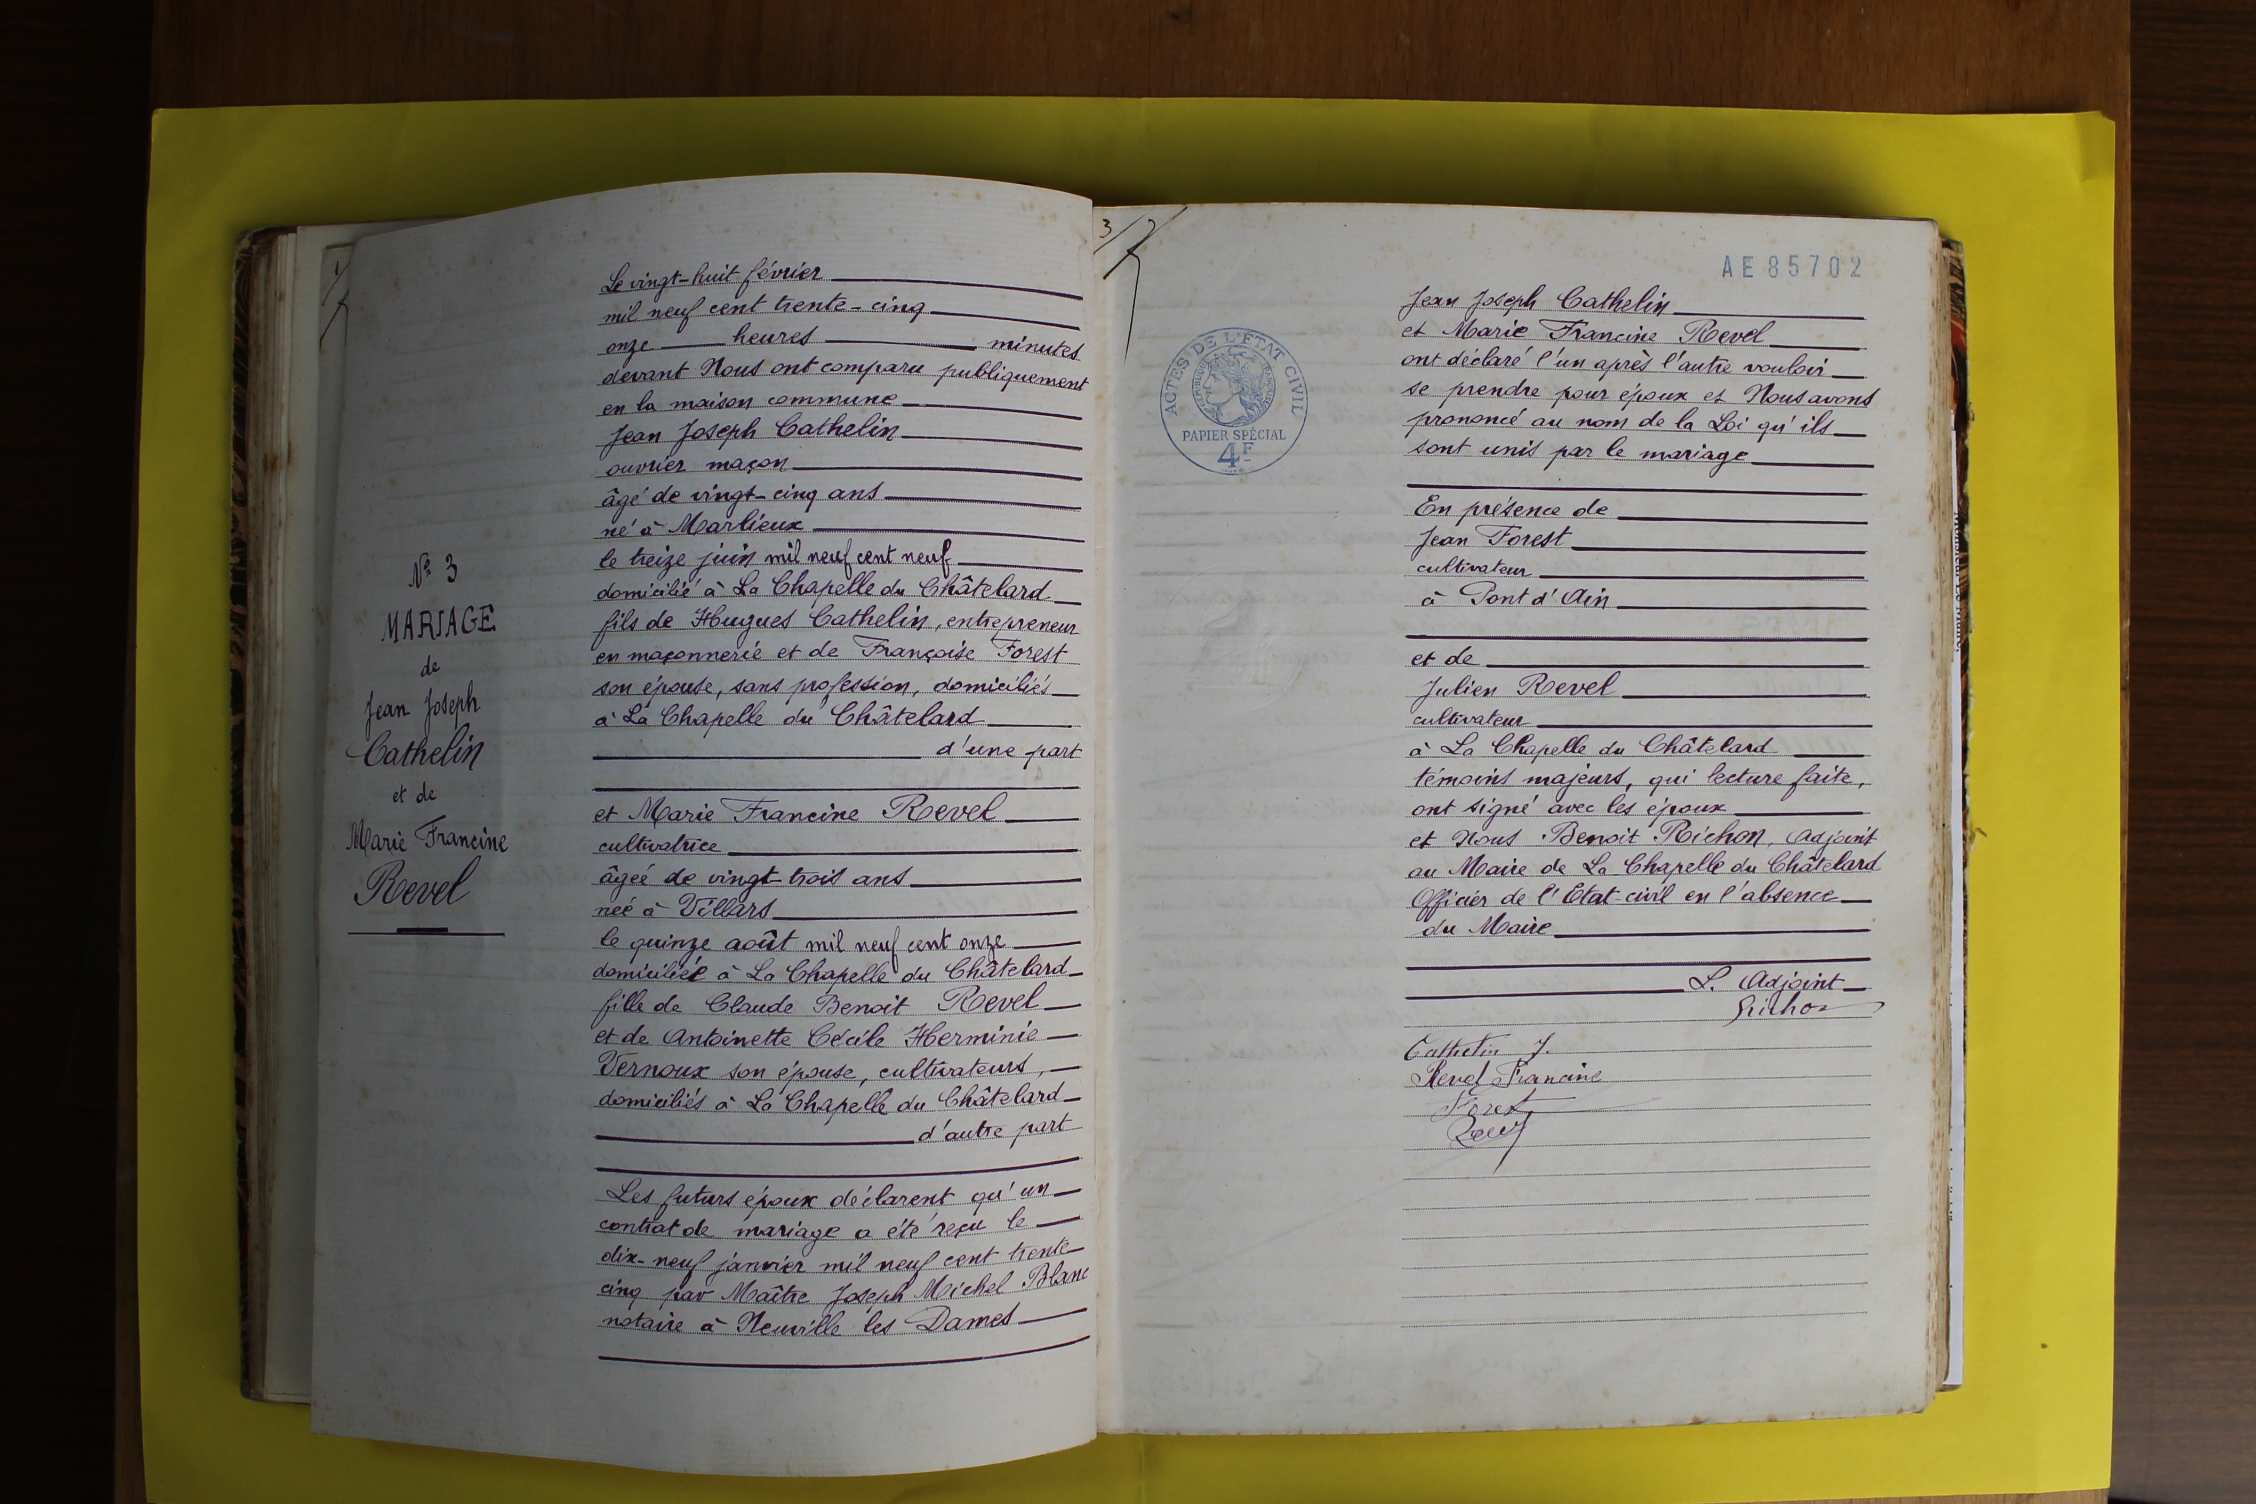 N° 3
MARIAGE
de
Jean Joseph
Cathelin
et de
Marie Francine
Revel
Le vingt-huit février
mil neuf cent trente-cinq
onze heures minutes
devant Nous ont comparu publiquement
en la maison commune
Jean Joseph Cathelin
ouvrier maçon
âgé de vingt-cinq ans
né à Marlieux
le treize juin mil neuf cent neuf
domicilié à La Chapelle du Châtelard
fils de Hugues Cathelin, entrepreneur
en maçonnerie et de Françoise Forest
son épouse, sans profession, domiciliés
à La Chapelle du Châtelard
d'une part
et Marie Francine Revel
cultivatrice
âgée de vingt-trois ans
née à Villars
le quinze août mil neuf cent onze
domiciliée à La Chapelle du Châtelard
fille de Claude Benoit Revel
et de Antoinette Cécile Herminie
Vernoux son épouse, cultivateurs,
domiciliés à La Chapelle du Châtelard
d'autre part
Les futurs époux déclarent qu'un
contrat de mariage a été reçu le
dix-neuf janvier mil neuf cent trente
cinq par Maître Joseph Michel Blanc
notaire à Neuville les Dames
3
AE85702
ACTES DE L'ÉTAT CIVIL
RÉPUBLIQUE FRANÇAISE
PAPIER SPÉCIAL
4F
Jean Joseph Cathelin
et Marie Francine Revel
ont déclaré l'un après l'autre vouloir
se prendre pour époux et Nous avons
prononcé au nom de la Loi qu'ils
sont unis par le mariage
En présence de
Jean Forest
cultivateur
à Pont d'Ain
et de
Julien Revel
cultivateur
à La Chapelle du Châtelard
témoins majeurs, qui lecture faite,
ont signé avec les époux
et Nous Benoit Richon, Adjoint
au Maire de La Chapelle du Châtelard
Officier de l'Etat-civil en l'absence
du Maire
L. Adjoint
Richon
Cathelin J.
Revel Francine
Forest
Revel